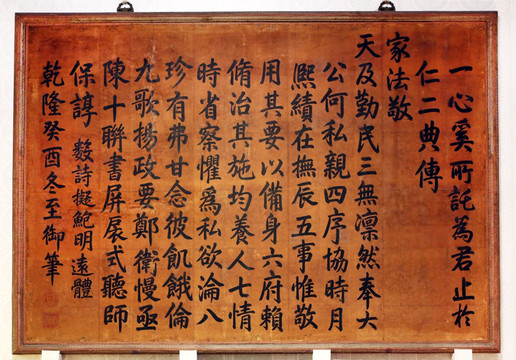 一心奚所託為君止於
仁二典傳
家法敬
天及勤民三無凜然奉大
公何私親四序協時月
熙績在撫辰五事惟敬
用其要以備身六府賴
脩治其施均養人七情
時省察懼為私欲淪八
珍有弗甘念彼飢餓倫
九歌揚政要鄭衛慢亟
陳十聯書屏扆式聽師
保諄 數詩擬鮑明遠體
乾隆癸酉冬至御筆